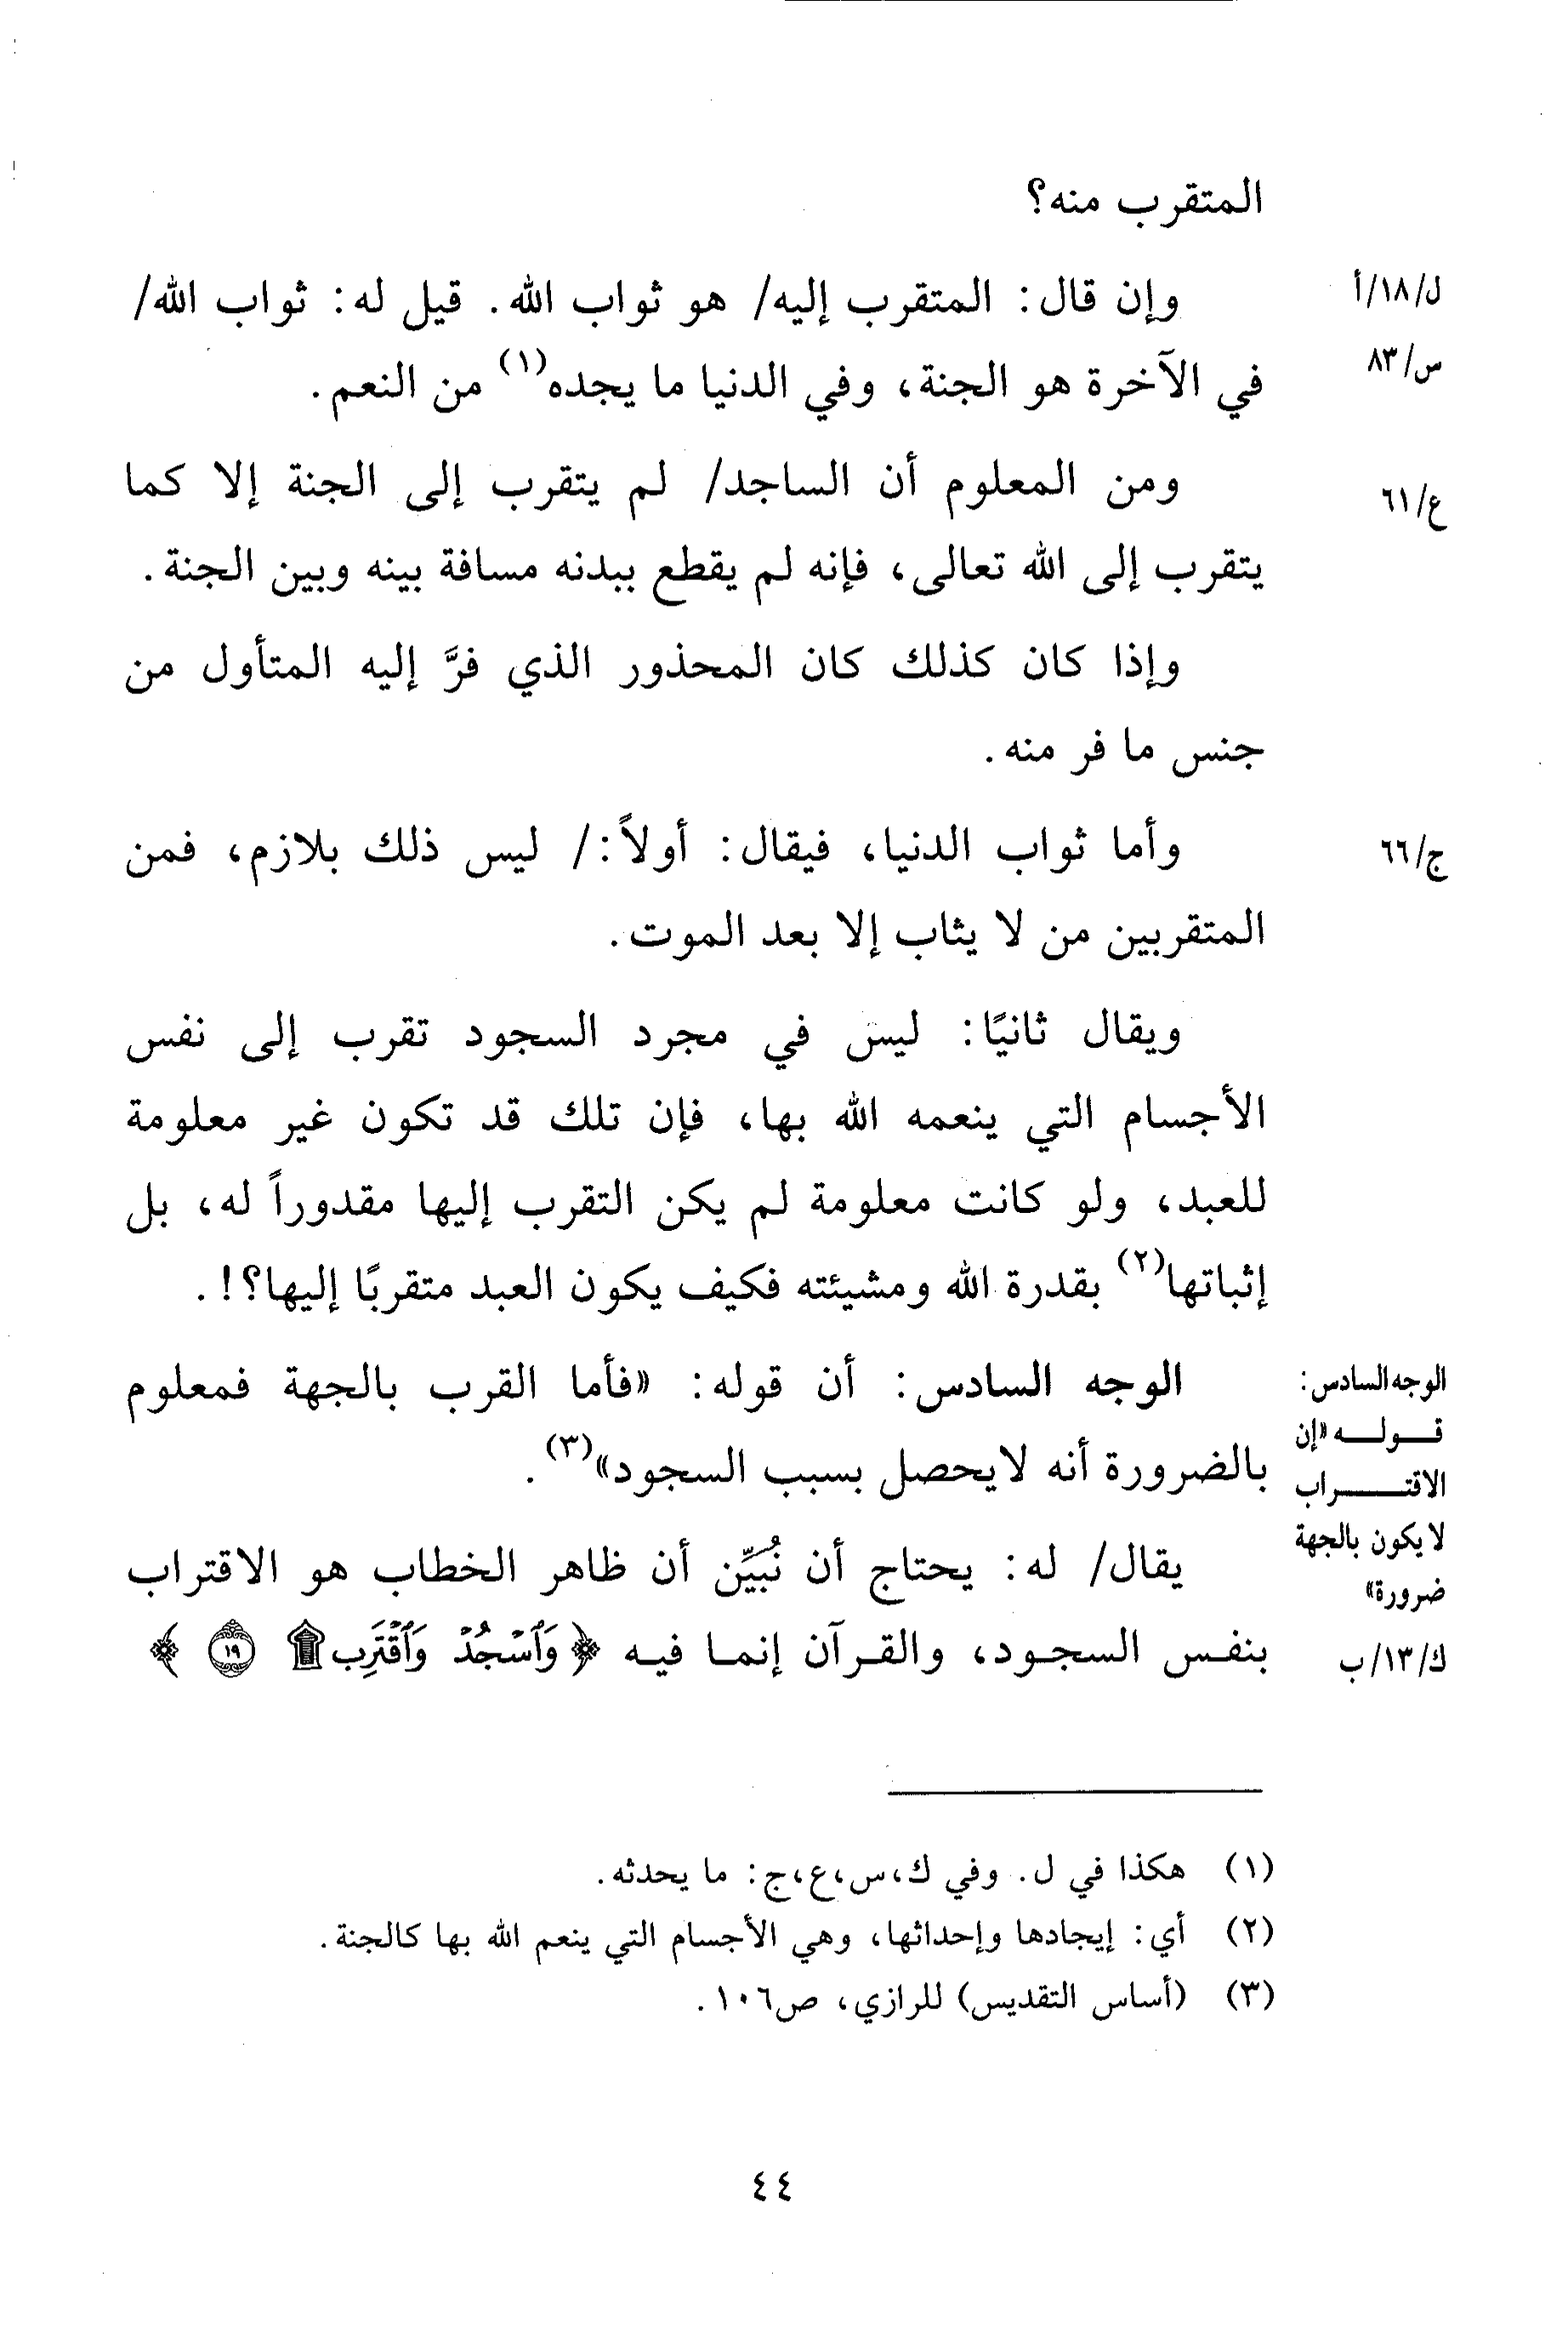 المتقرب منه؟
وإن قال: المتقرب إليه/ هو ثواب الله. قيل له: ثواب الله/
ل/١٨/أ
في الآخرة هو الجنة، وفي الدنيا ما يجده(١) من النعم.
س/٨٣
ومن المعلوم أن الساجد/ لم يتقرب إلى الجنة إلا كما
ع/٦١
يتقرب إلى الله تعالى، فإنه لم يقطع ببدنه مسافة بينه وبين الجنة.
وإذا كان كذلك كان المحذور الذي فرَّ إليه المتأول من
جنس ما فر منه.
وأما ثواب الدنيا، فيقال: أولاً:/ ليس ذلك بلازم، فمن
ج/٦٦
المتقربين من لا يثاب إلا بعد الموت.
ويقال ثانيًا: ليس في مجرد السجود تقرب إلى نفس
الأجسام التي ينعمه الله بها، فإن تلك قد تكون غير معلومة
للعبد، ولو كانت معلومة لم يكن التقرب إليها مقدوراً له، بل
إثباتها(٢) بقدرة الله ومشيئته فكيف يكون العبد متقربًا إليها؟!.
الوجه السادس: أن قوله: «فأما القرب بالجهة فمعلوم
بالضرورة أنه لايحصل بسبب السجود»(٣).
الوجه السادس:
قـولـه «إن
الاقتـــراب
لا يكون بالجهة
ضرورة»
يقال/ له: يحتاج أن نُبيِّن أن ظاهر الخطاب هو الاقتراب
بنفـس السجـود، والقـرآن إنمـا فيـه ﴿وَٱسۡجُدۡ وَٱقۡتَرِب۩ ١٩﴾
ك/١٣/ب
(١) هكذا في ل. وفي ك،س،ع،ج: ما يحدثه.
(٢) أي: إيجادها وإحداثها، وهي الأجسام التي ينعم الله بها كالجنة.
(٣) (أساس التقديس) للرازي، ص١٠٦.
٤٤